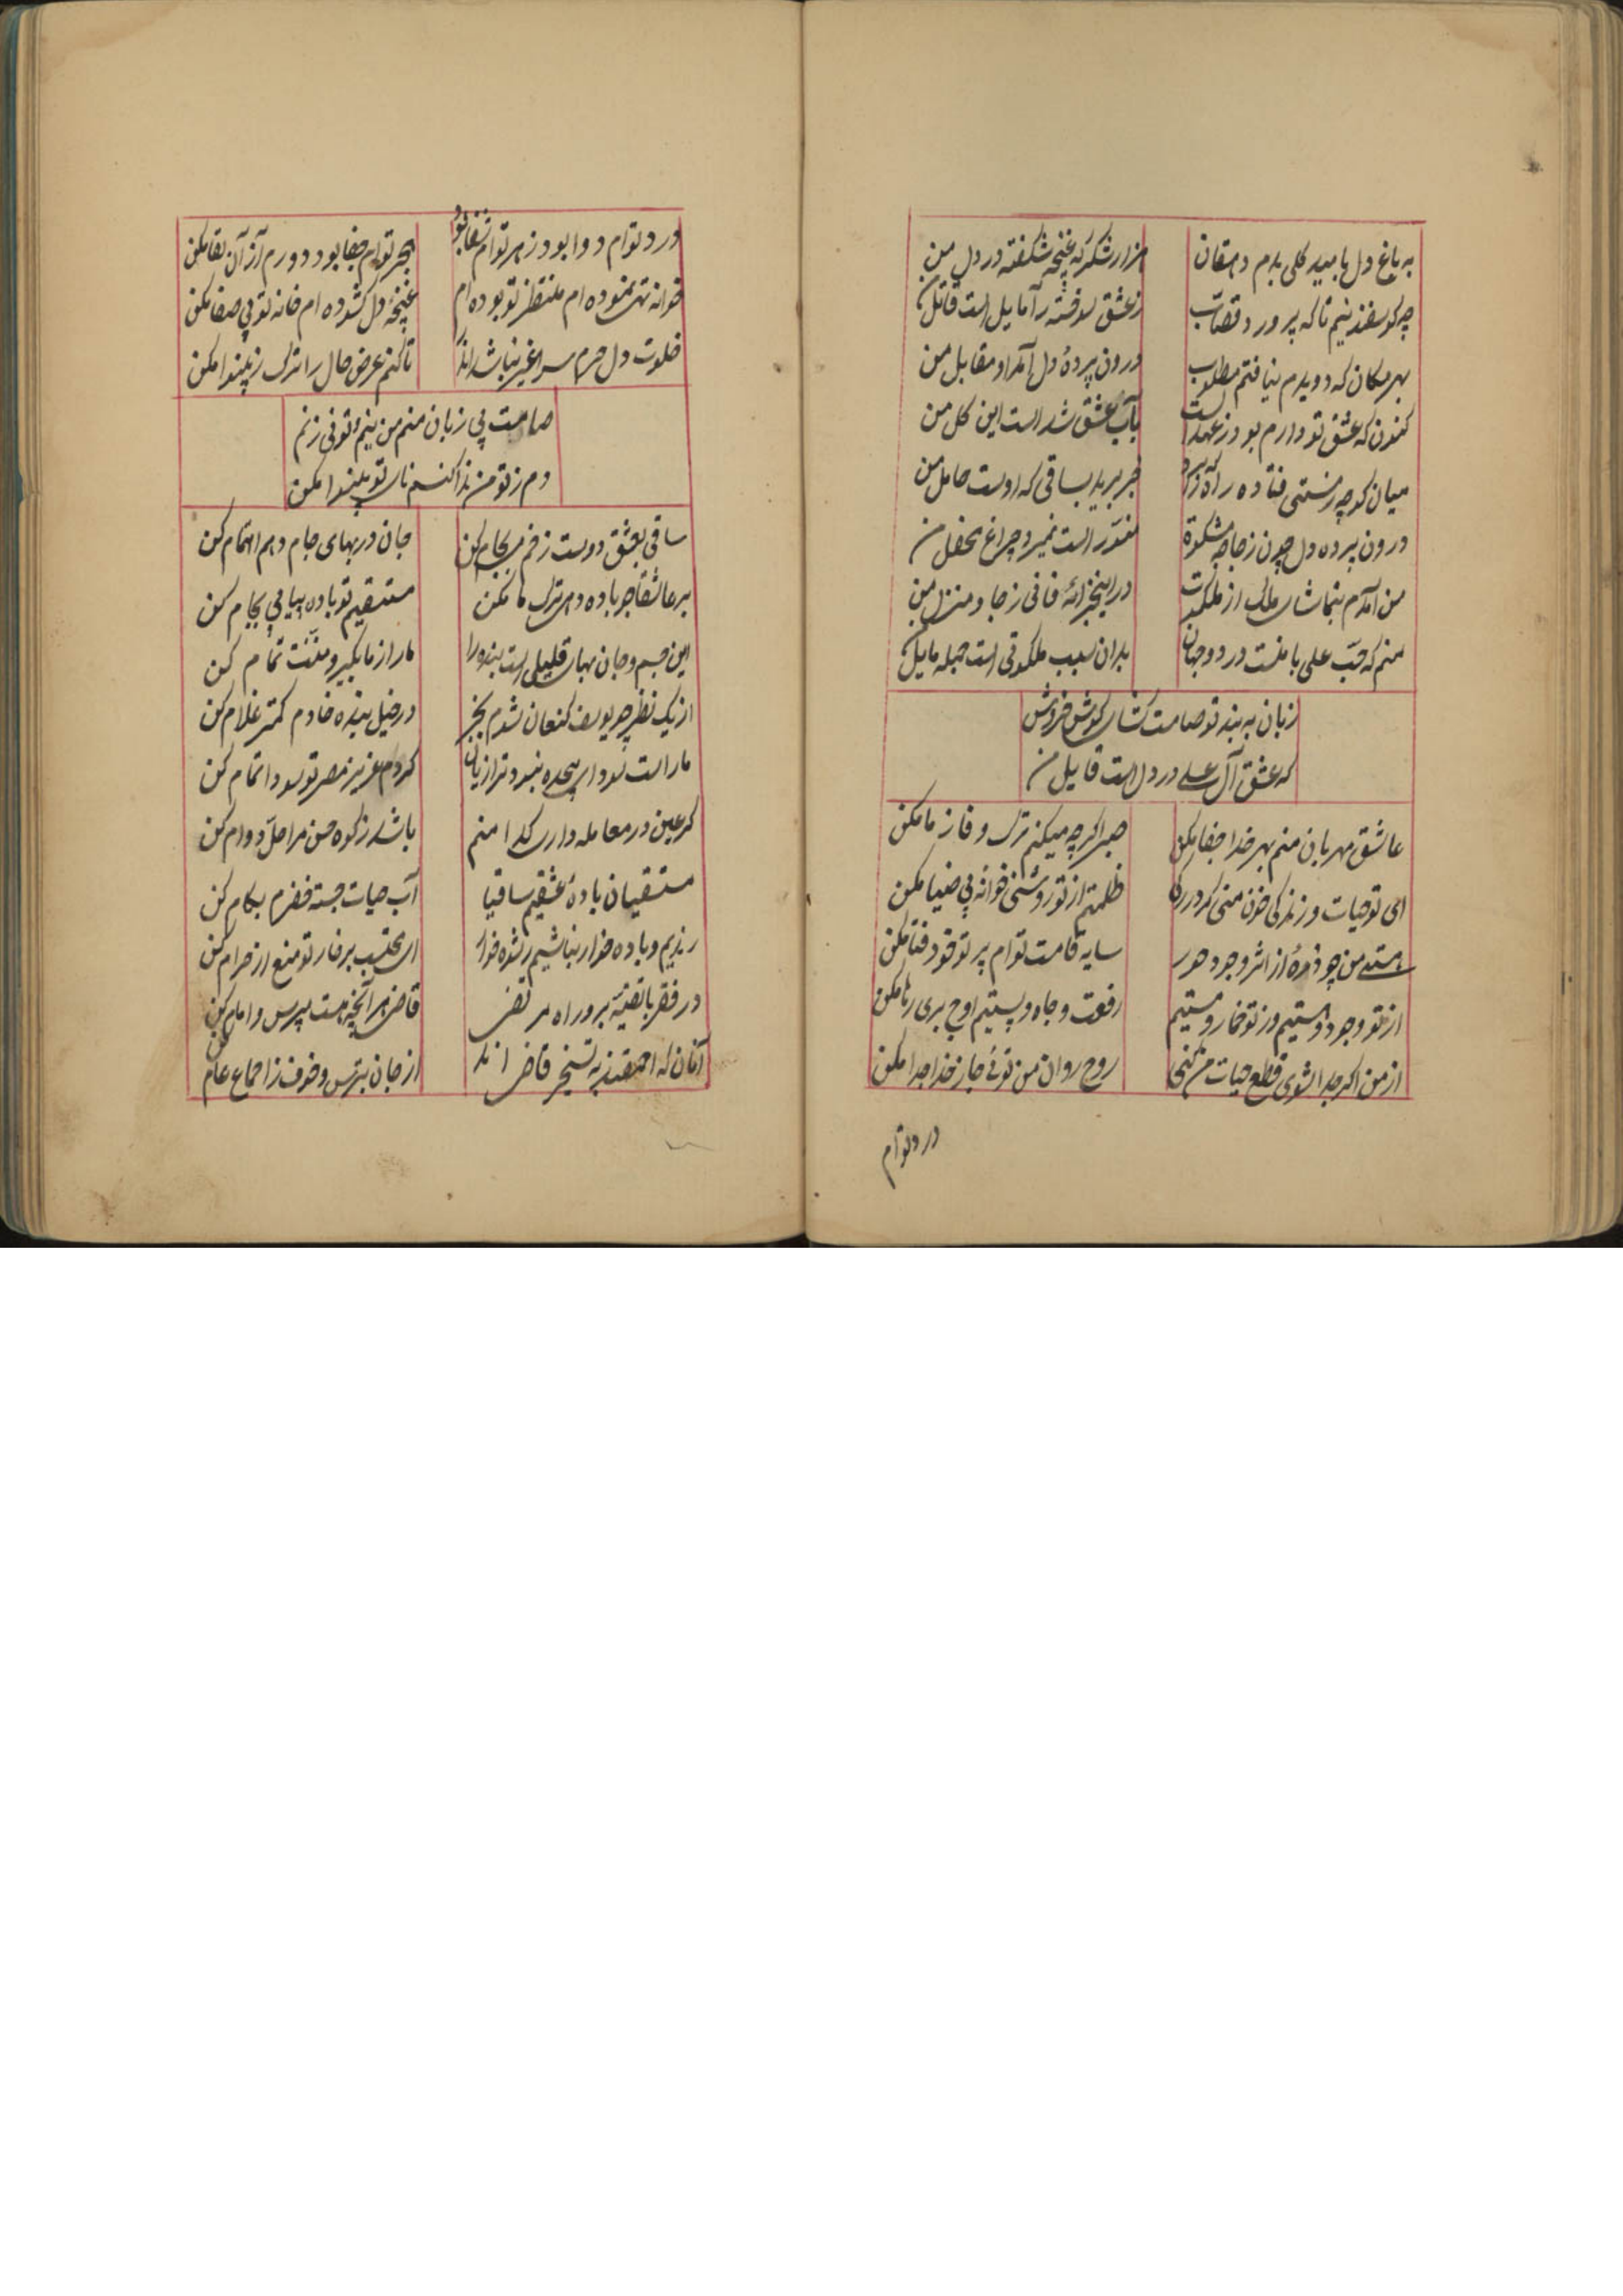 به باغ دل بامید کلی بدم دهقان
هزار شکر که غنچه شکفته در دل من
چه کوسفندنیم تا که پرورد قصاب
ز عشق کوفته را مایل است قاتل من
بهر مکان که دویدم نیافتم مطلوب
درون پردهٔ دل آمد او مقابل من
کنون که عشق تو دارم بود ز عهد الست
بآب عشق شد است این کل من
میان کوچه رستی فتاده راه
خبر برید بساقی که اوست حامل من
درون پرده دل چون زجاجه مشکوة
منور است نمیرد چراغ محفل من
من آمدم بتماشای ملک از ملکوت
در این خزانهٔ فانی ز جا و منزل من
منم که حب علی با منست در دو جهان
بدان سبب ملکوتی است جمله مایل من
زبان به بند تو صامت کشای کوش خروش
که عشق آل علی در دل است قایل من
عاشق مهربان منم بهر خدا جفا مکن
صبر اکر چه میکنم ترک وفا ز ما مکن
ای تو حیات و زندکی خون منی کرد رکم
ظلمتم از تو روشنی خوانه بی ضیا مکن
هستی من چو ذرهٔ از اثر وجود هور
سایه قامت توام پرتو خود فنا مکن
از تو وجود و هستیم وز تو خمار و مستیم
رفعت و جاه و پستیم اوج بری رها مکن
از من اکر جدا شوی قطع حیات من کنی
روح روان من توئی جان ز خدا جدا مکن
درد توام
درد توام دوا بود زهر توام شفا بود
هجر توام جفا بود دورم از آن بقا مکن
خوانه تهی نموده ام منتظر تو بوده ام
غنچهٔ دل کشوده ام خانه تو بی صفا مکن
خلوت دل حرم سرا غیر نباشد اندر
تا کنم عرض حال را ترک ز بینوا مکن
صامت بی زبان منم من نیم و تو نی زنم
دم ز تو من ندا کنم نای تو بینوا مکن
ساقی بعشق دوست ز خم می بجام کن
جان در بهای جام دهم اهتمام کن
بر عاشقا جر باده دهی ترک ما مکن
مستسقیم تو باده پیاپی بجام کن
این جسم و جان بهای قلیلی است بنده را
ما را ز ما بکیر و منت تمام کن
از یک نظر چو یوسف کنعان شدم بخر
در خیل بنده خادم کمتر غلام کن
ما راست سودای هیجده نبرد ترا زیان
کردم عزیز مصر تو سودا تمام کن
کر عیب در معامله داری کدا منم
باشد زکوه حسن مرا حل دوام کن
مستسقیان بادهٔ عشقیم ساقیا
آب حیات جسته خضرم بکام کن
رندیم و باده خوار نباشیم رشوه خوار
ای محتسب برفار تو منع از حرام کن
در فقر با تقیه برو راه مرتضی
قاضی هر آنچه هست بپرس و امام کن
آنان که احمقند به تسخیر قاضی اند
از جان بترس و خوف ز اجماع عام کن